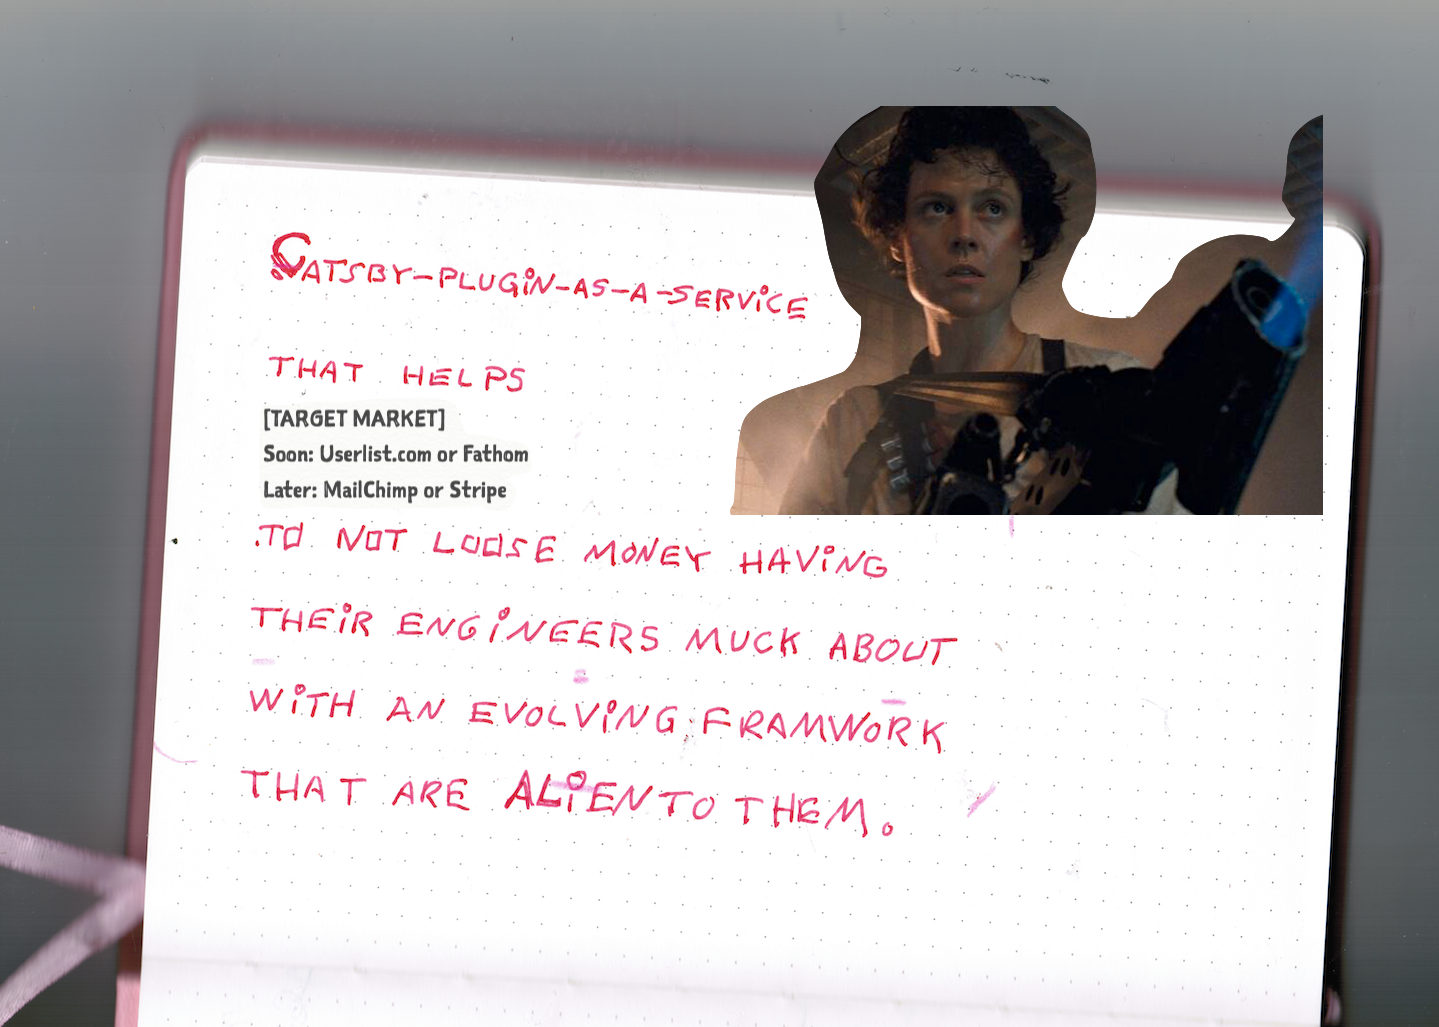 GATSBY-PLUGIN-AS-A-SERVICE
THAT HELPS
[TARGET MARKET]
Soon: Userlist.com or Fathom
Later: MailChimp or Stripe
TO NOT LOOSE MONEY HAVING
THEIR ENGINEERS MUCK ABOUT
WITH AN EVOLVING FRAMWORK
THAT ARE ALIEN TO THEM.